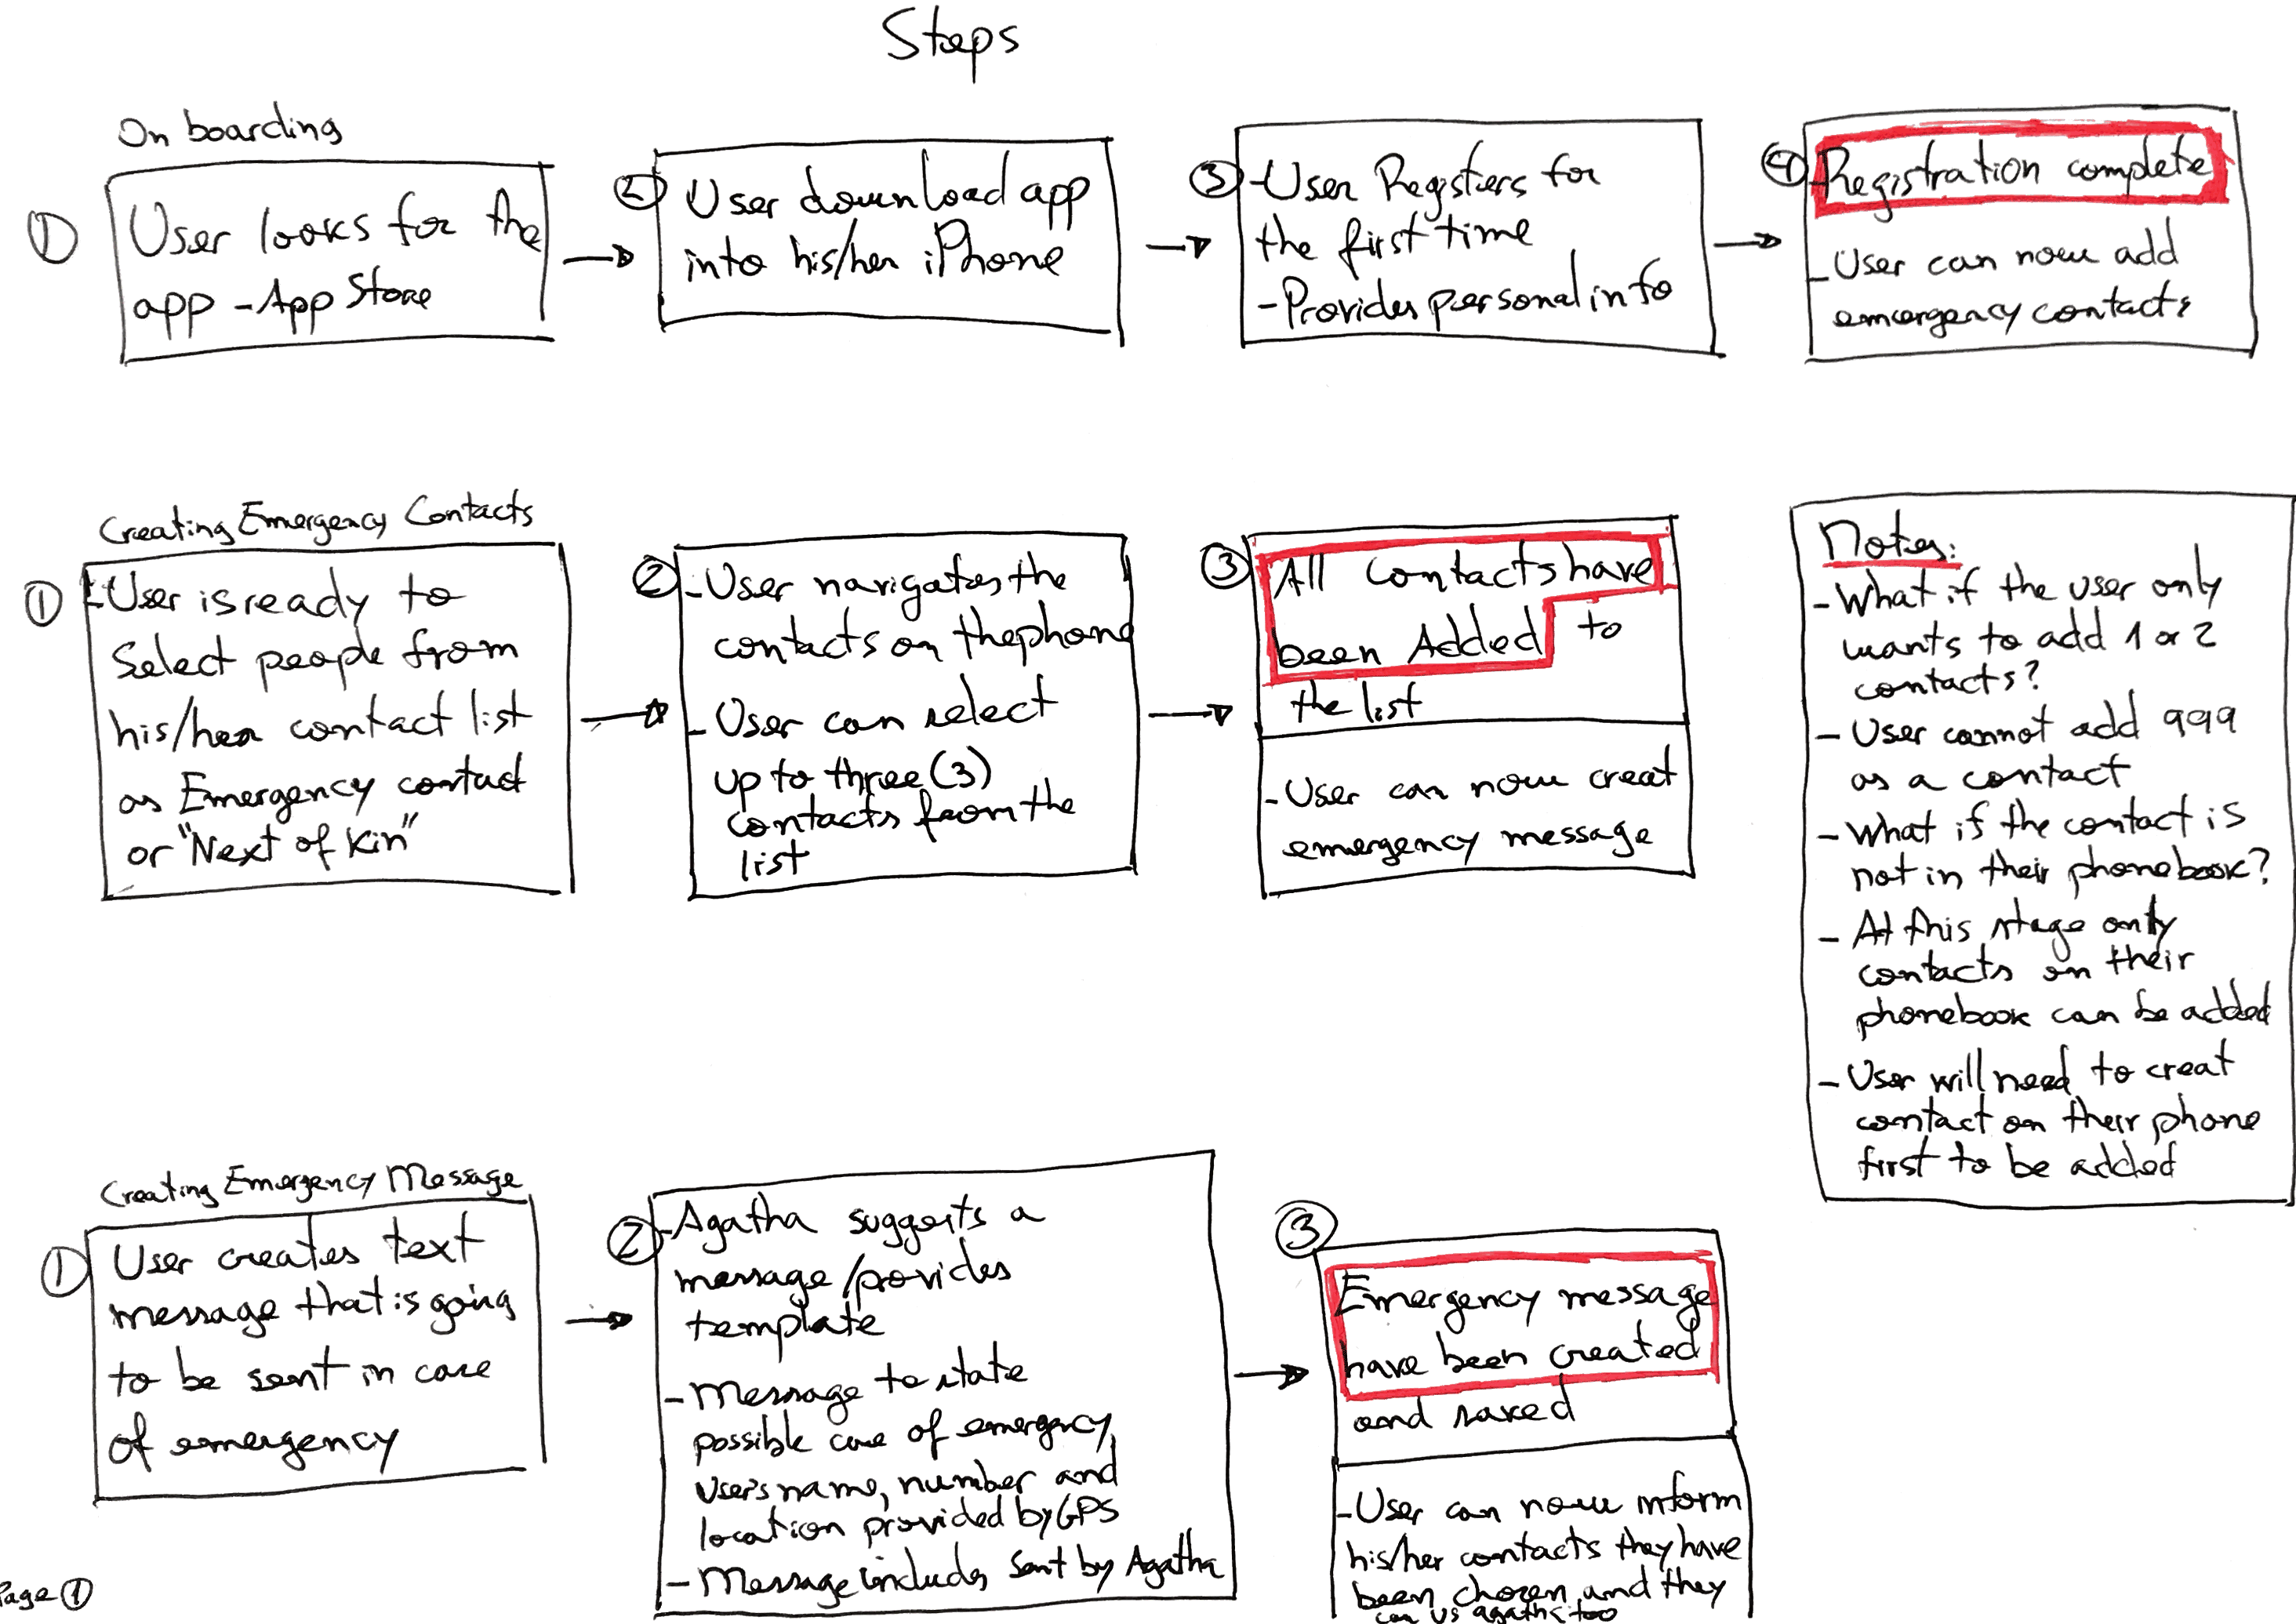 Steps
On boarding
①
User looks for the
app - App Store
②
User download app
into his/her iPhone
③
- User Registers for
the first time
- Provides personal info
④
- Registration complete
- User can now add
emergency contacts
Creating Emergency Contacts
①
- User is ready to
Select people from
his/her contact list
as Emergency contact
or "Next of Kin"
②
- User navigates the
contacts on the phone
- User can select
up to three (3)
contacts from the
list
③
All contacts have
been Added to
the list
- User can now creat
emergency message
Notes:
- What if the user only
wants to add 1 or 2
contacts?
- User cannot add 999
as a contact
- What if the contact is
not in their phonebook?
- At this stage only
contacts on their
phonebook can be added
- User will need to creat
contact on their phone
first to be added
Creating Emergency Message
①
User creates text
message that is going
to be sent in case
of emergency
②
- Agatha suggests a
message/provides
template
- Message to state
possible case of emergency,
user's name, number and
location provided by GPS
- Message includes sent by Agatha
③
Emergency message
have been created
and saved
- User can now inform
his/her contacts they have
been chosen and they
can us agatha too
Page ①